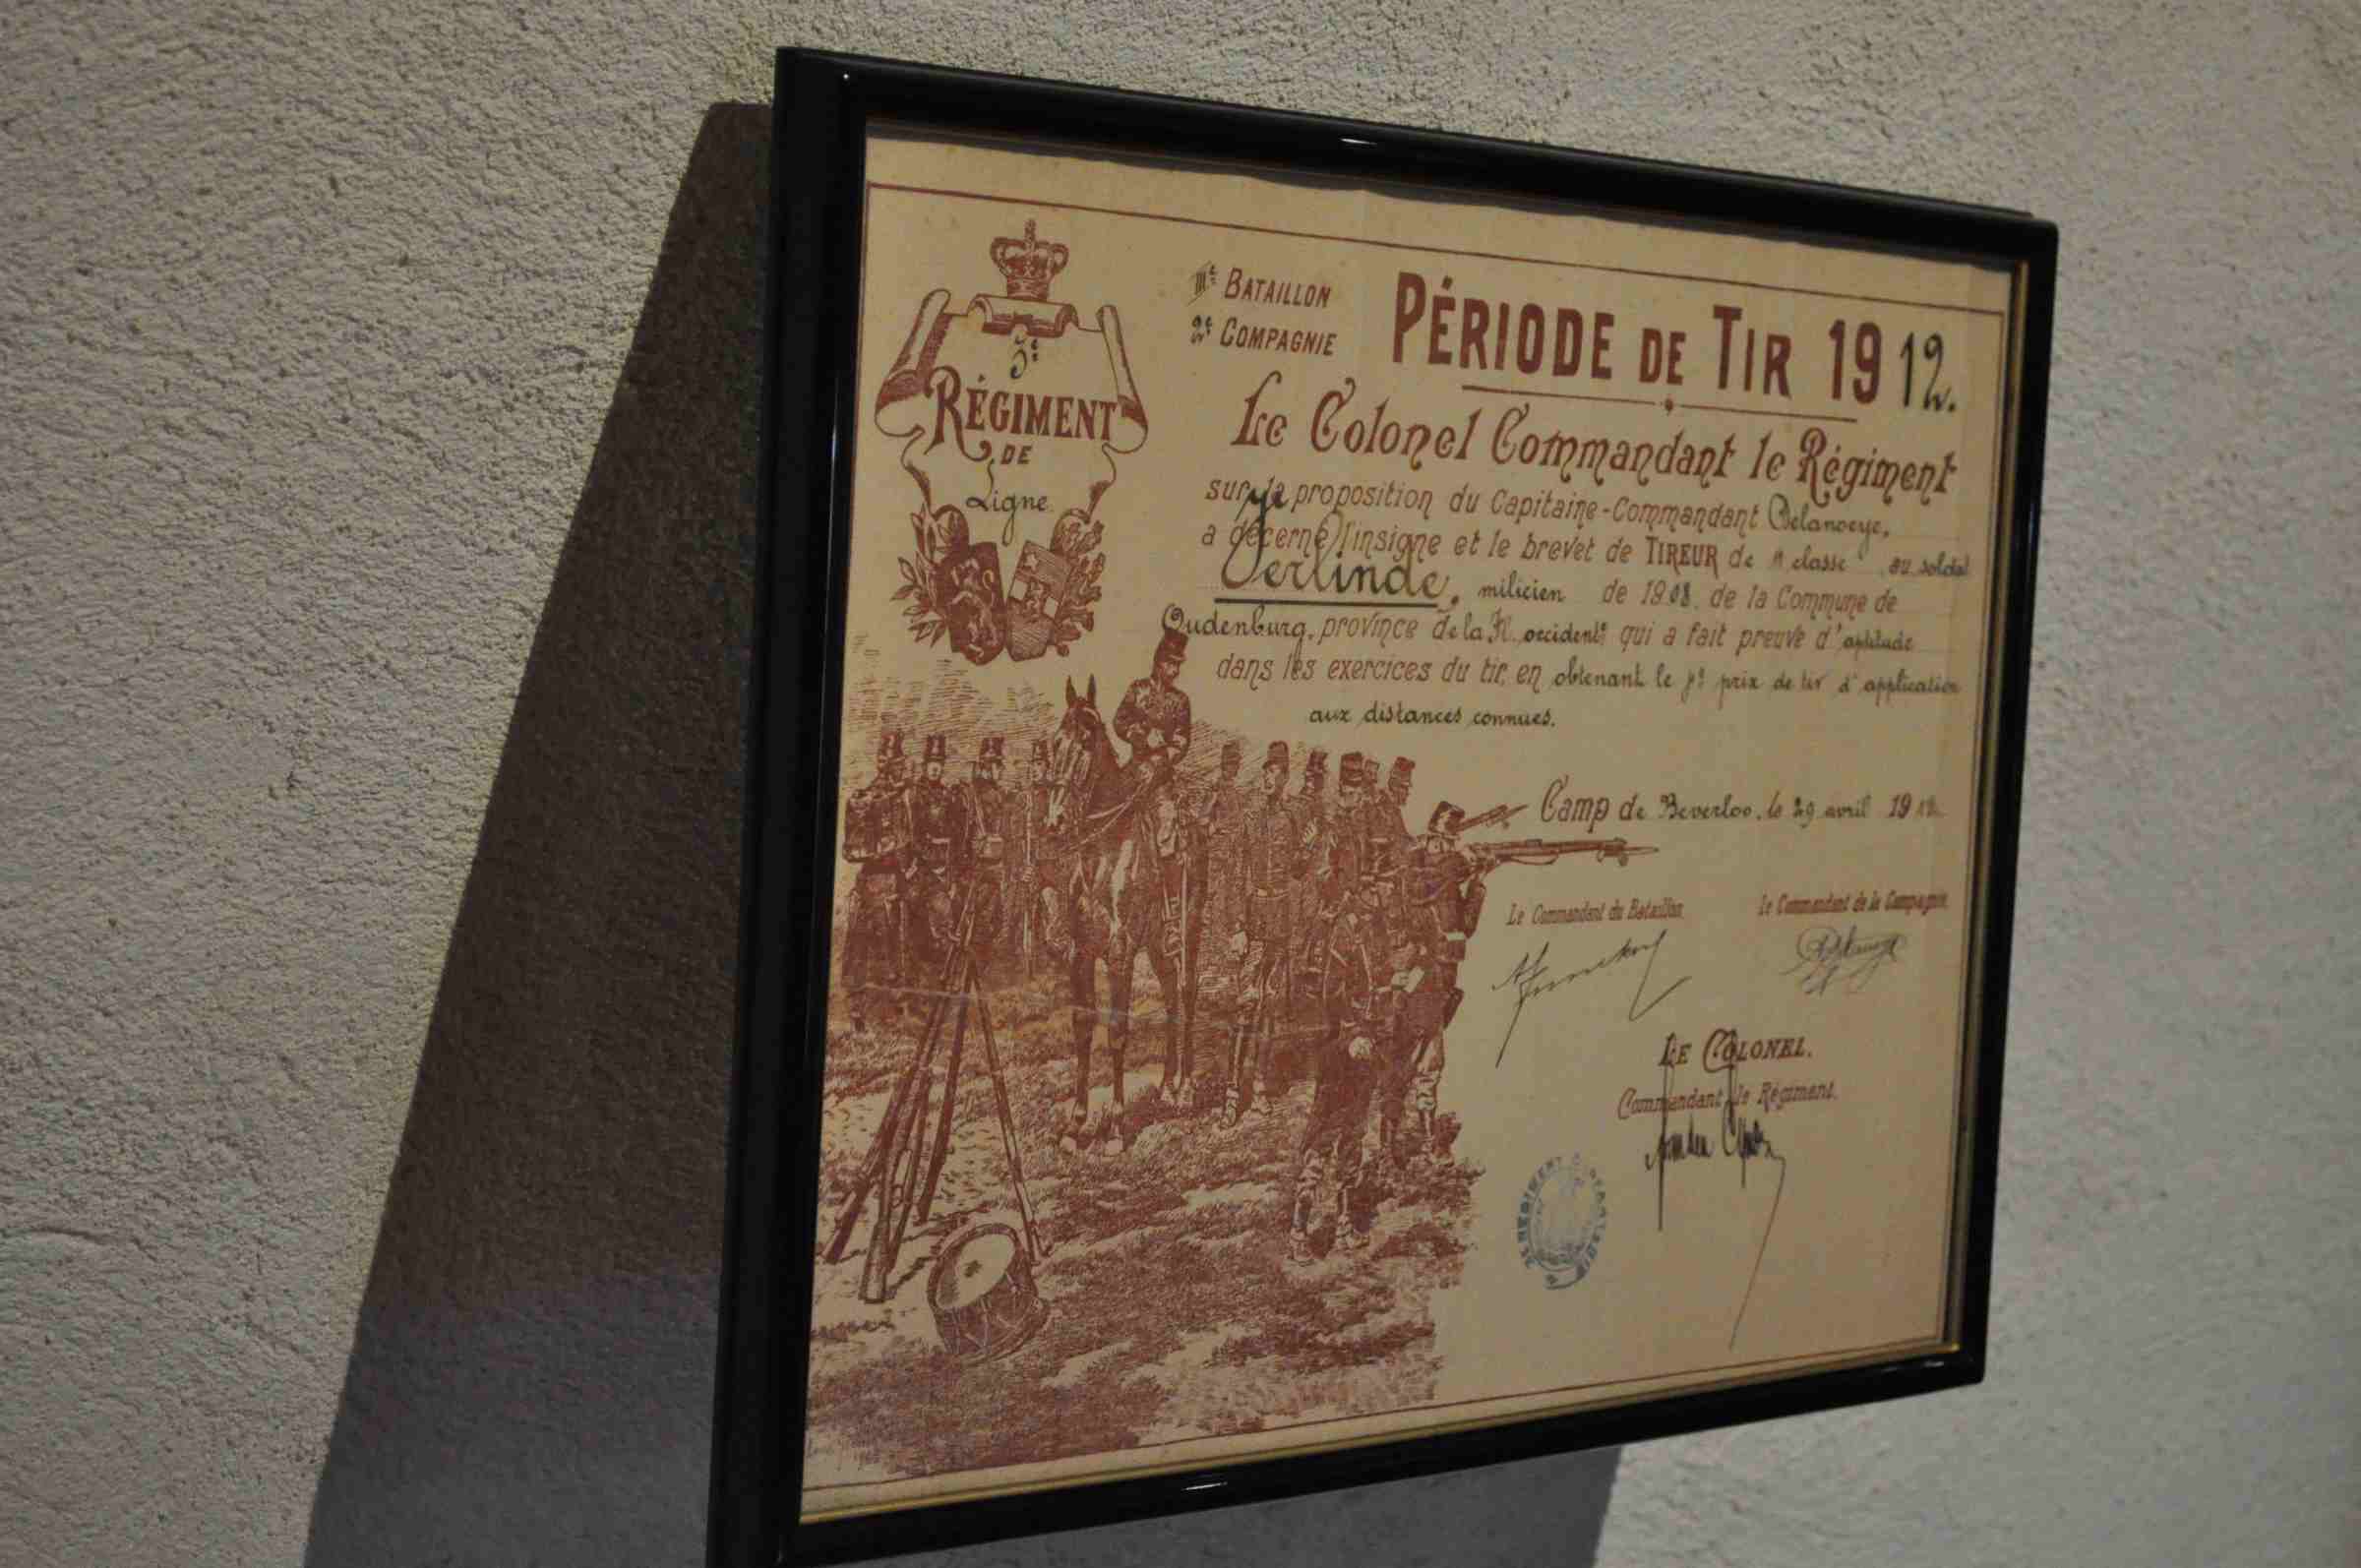 3e
RÉGIMENT
DE
Ligne
IIIe BATAILLON
2e COMPAGNIE
PÉRIODE DE TIR 1912.
Le Colonel Commandant le Régiment
sur la proposition du Capitaine-Commandant Delanoeye,
a décerné l'insigne et le brevet de TIREUR de 1e classe au soldat
Verlinde, milicien de 1908. de la Commune de
Oudenburg, province de la Fl. occidentle qui a fait preuve d'aptitude
dans les exercices du tir, en obtenant le 1er prix de tir d'application
aux distances connues.
Camp de Beverloo, le 29 avril 1912.
Le Commandant du Bataillon,
Le Commandant de la Compagnie,
LE COLONEL.
Commandant le Régiment.
REGIMENT